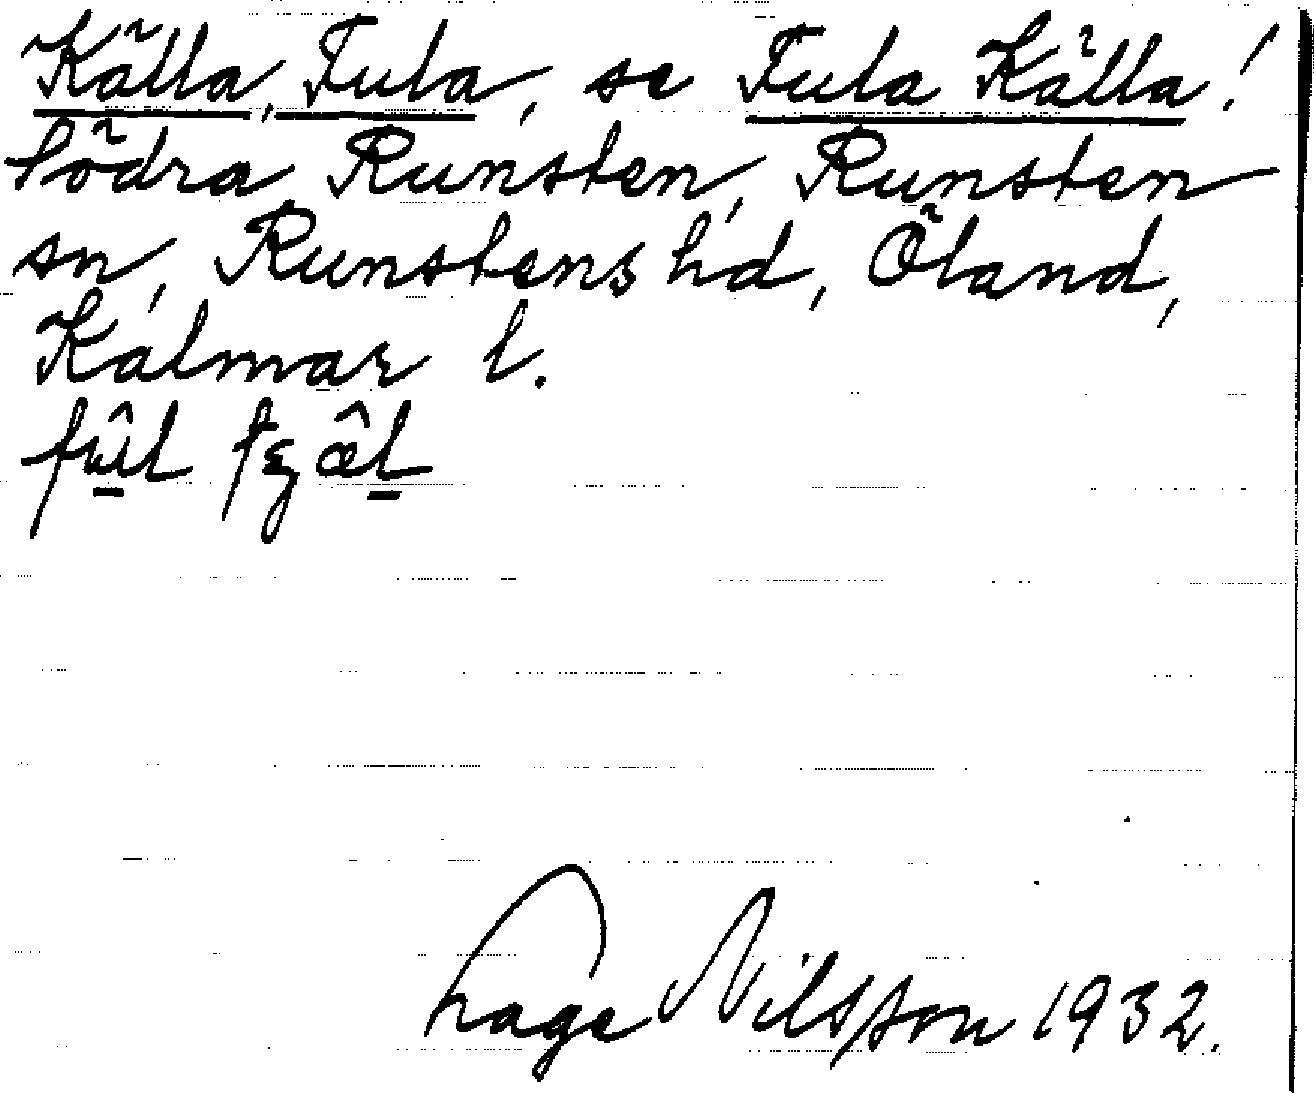 Källa, Fula, se Fula Källa!
Södra Runsten, Runsten
sn, Runstens hd, Öland,
Kalmar l.
Nilsson 1932.